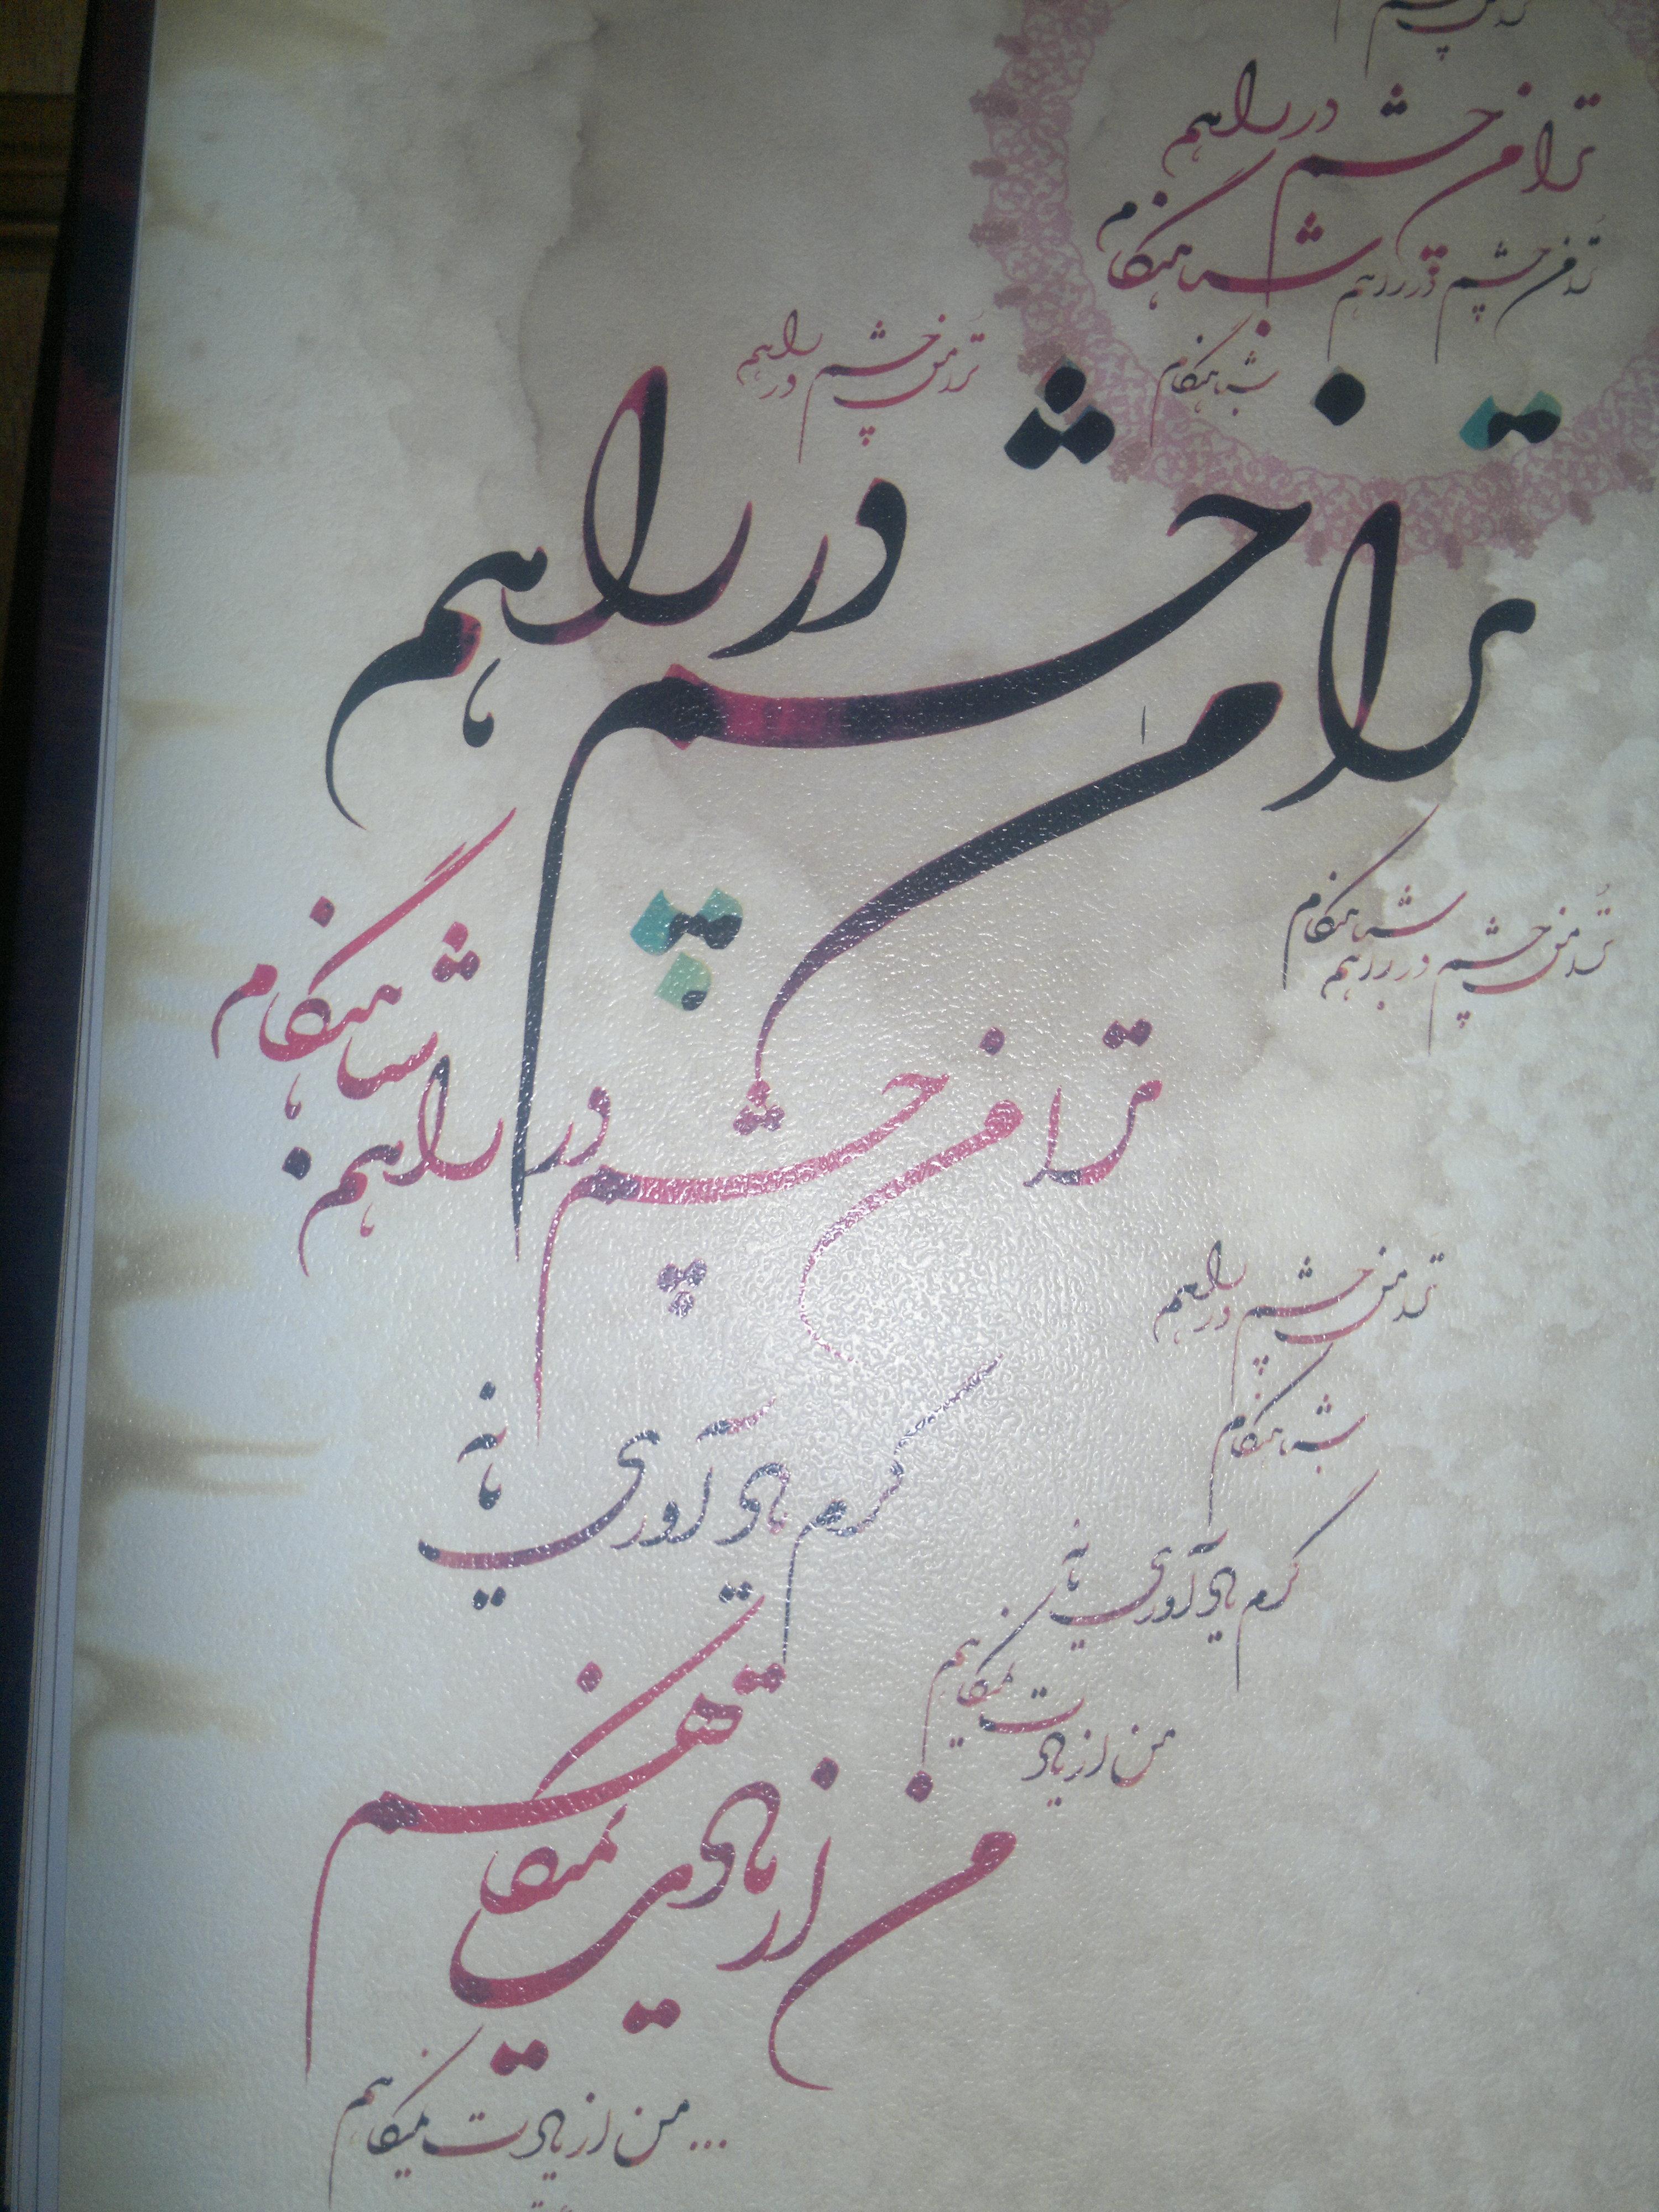 ترا من چشم در راهم
شباهنگام
ترا من چشم در راهم
شباهنگام
ترا من چشم در راهم
ترا من چشم در راهم
ترا من چشم در راهم
شباهنگام
ترا من چشم در راهم
شباهنگام
ترا من چشم در راهم
ترا من چشم در راهم
شباهنگام
گرم یاد آوری یا نه
گرم یاد آوری یا نه
من از یادت نمیکاهم
من از یادت نمیکاهم
من از یادت نمیکاهم...